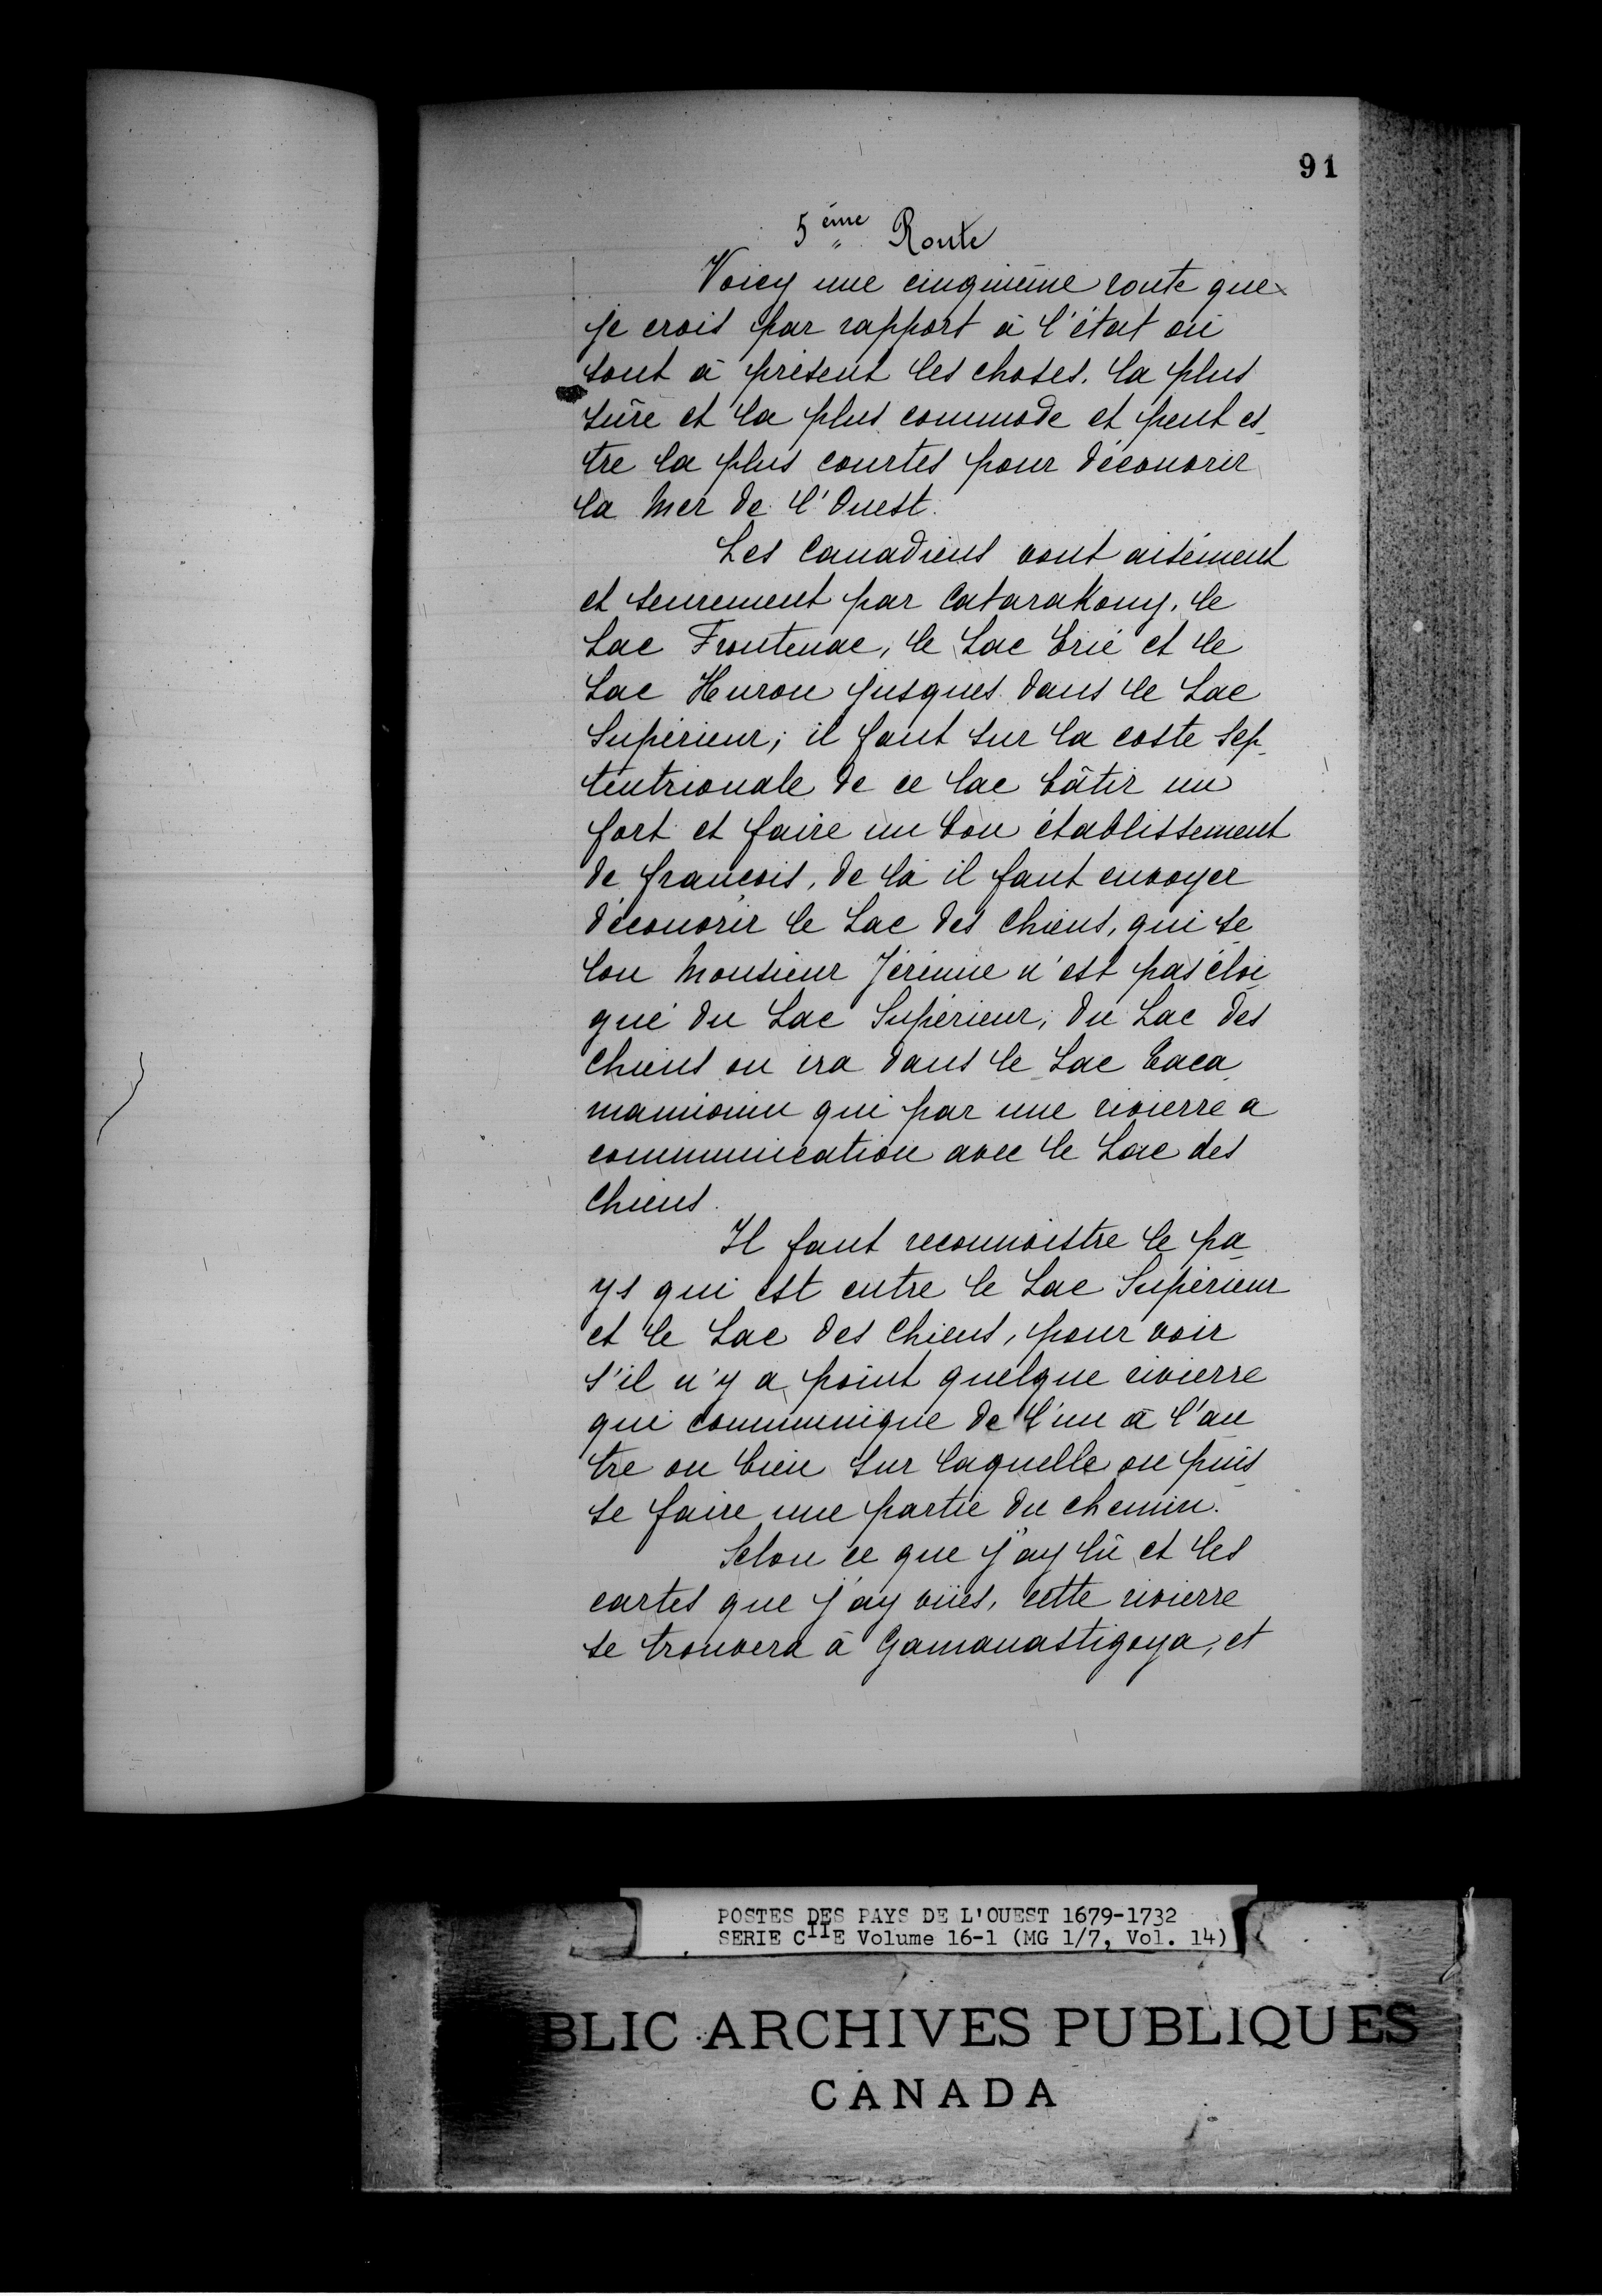 91
5ème Route
Voicy une cinquième route que
je crois par rapport à l'état où
sont à présent les choses, la plus
sûre et la plus commode et peut es-
tre la plus courtes pour découvrir
la mer de l'Ouest.
Les Canadiens vont aisément
et seurement par Catarakouy, le
Lac Frontenac, le Lac Erié et le
Lac Huron jusques dans le Lac
Supérieur; il faut sur la coste sep-
tentrionale de ce lac bâtir un
fort et faire un bon établissement
de françois, de là il faut envoyer
découvrir le Lac des Chiens, qui se
lon Monsieur Jérémie n'est pas éloi
gné du Lac Supérieur; du Lac des
Chiens on ira dans le Lac Taca
mamiouen qui par une rivierre a
communication avec le Lac des
Chiens.
Il faut reconnoistre le pa
ys qui est entre le Lac Supérieur
et le Lac des Chiens, pour voir
s'il n'y a point quelque rivierre
qui communique de l'un à l'au
tre ou bien sur laquelle on puis
se faire une partie du chemin.
Selon ce que j'ay lû et les
cartes que j'ay vües, cette rivierre
se trouvera à Gamanastigoya, et
POSTES DES PAYS DE L'OUEST 1679-1732
SERIE CIIE Volume 16-1 (MG 1/7, Vol. 14)
BLIC ARCHIVES PUBLIQUES
CANADA